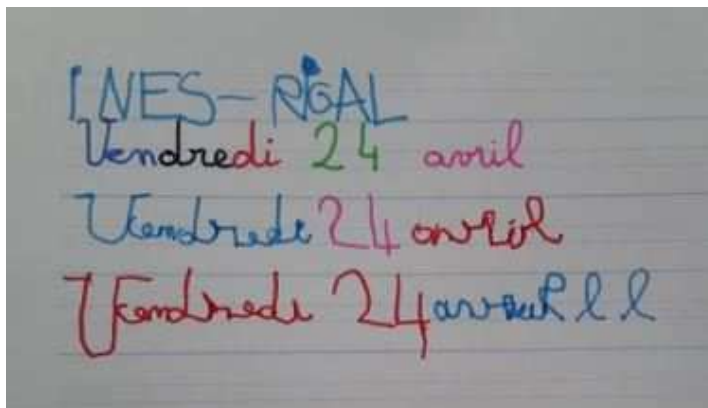 INES-RIGAL
Vendredi 24 avril
Vendredi 24 avril
Vendredi 24 avril l l